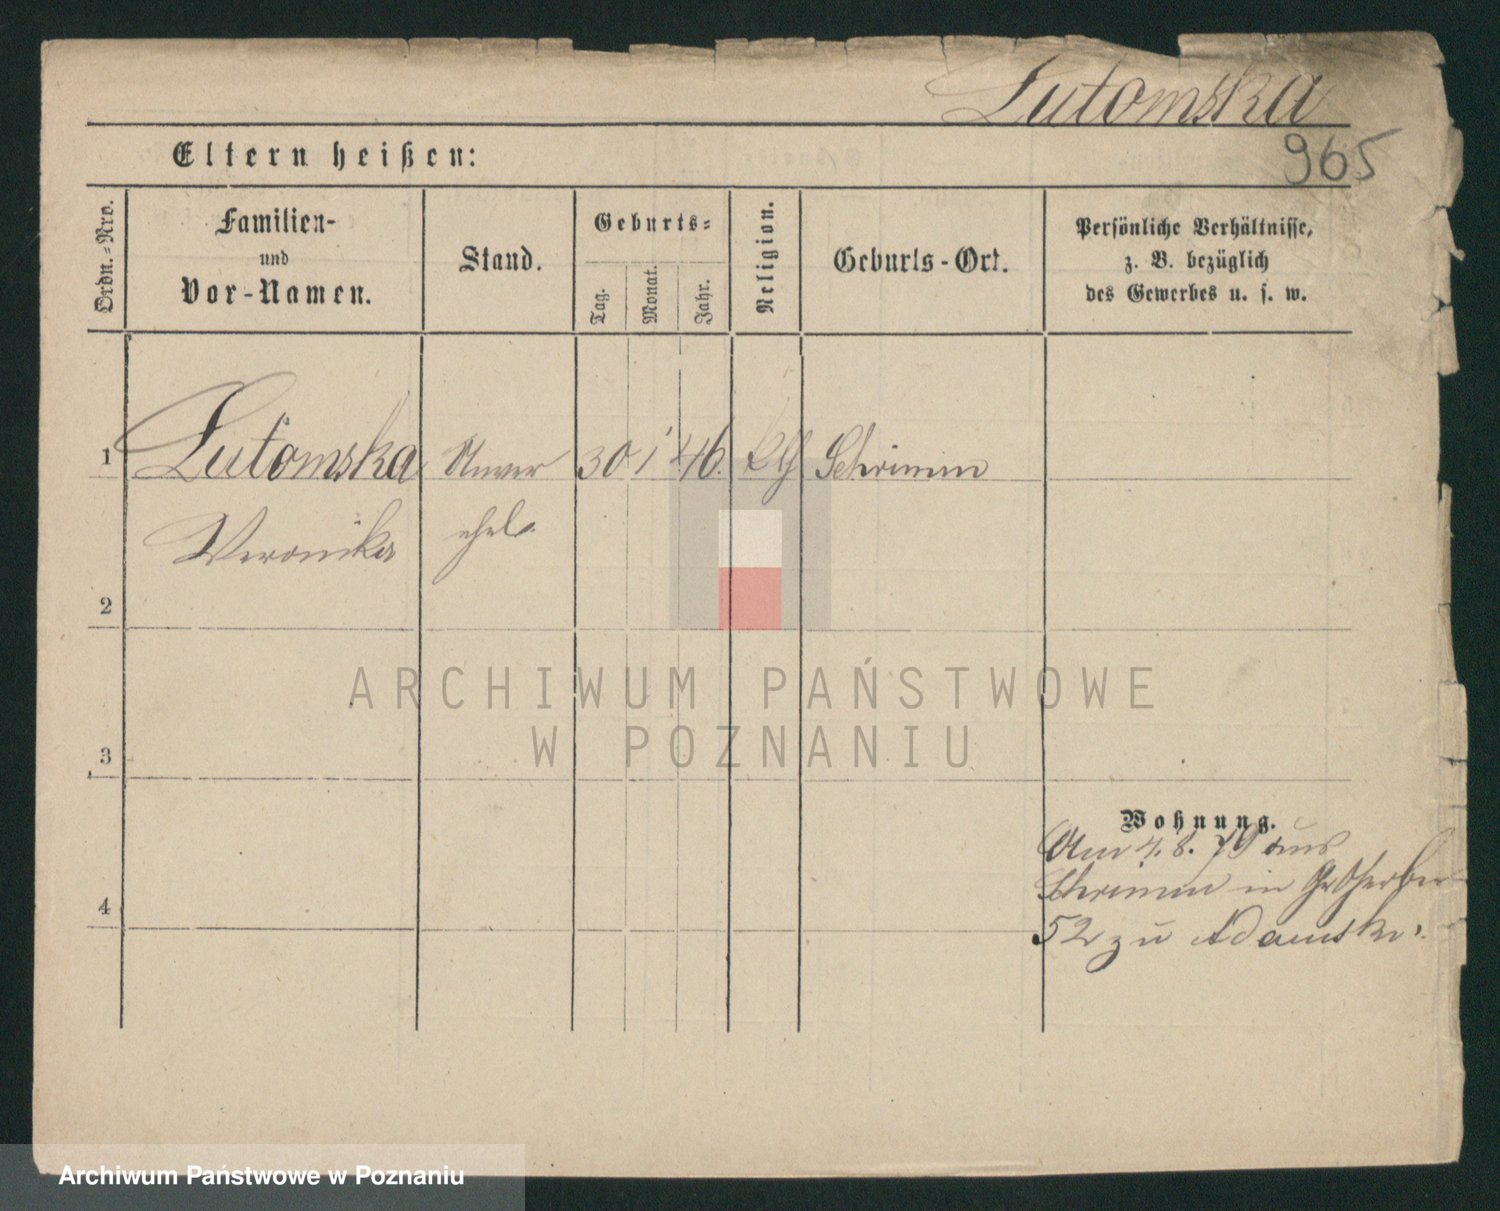 Lutomska
965
Eltern heißen:
Ordn.-Nro.
Familien-
und
Vor-Namen.
Stand.
Geburts-
Tag.
Monat.
Jahr.
Religion.
Geburts-Ort.
Persönliche Verhältnisse,
z. B. bezüglich
des Gewerbes u. s. w.
1 Lutomska Unver 30 1 46. kth Schrimm
Veronika ehel.
2
3
4
Wohnung.
Am 4.8.79 aus
Schrimm in Gr Gerber
52 zu Adamski.
ARCHIWUM PAŃSTWOWE
W POZNANIU
Archiwum Państwowe w Poznaniu